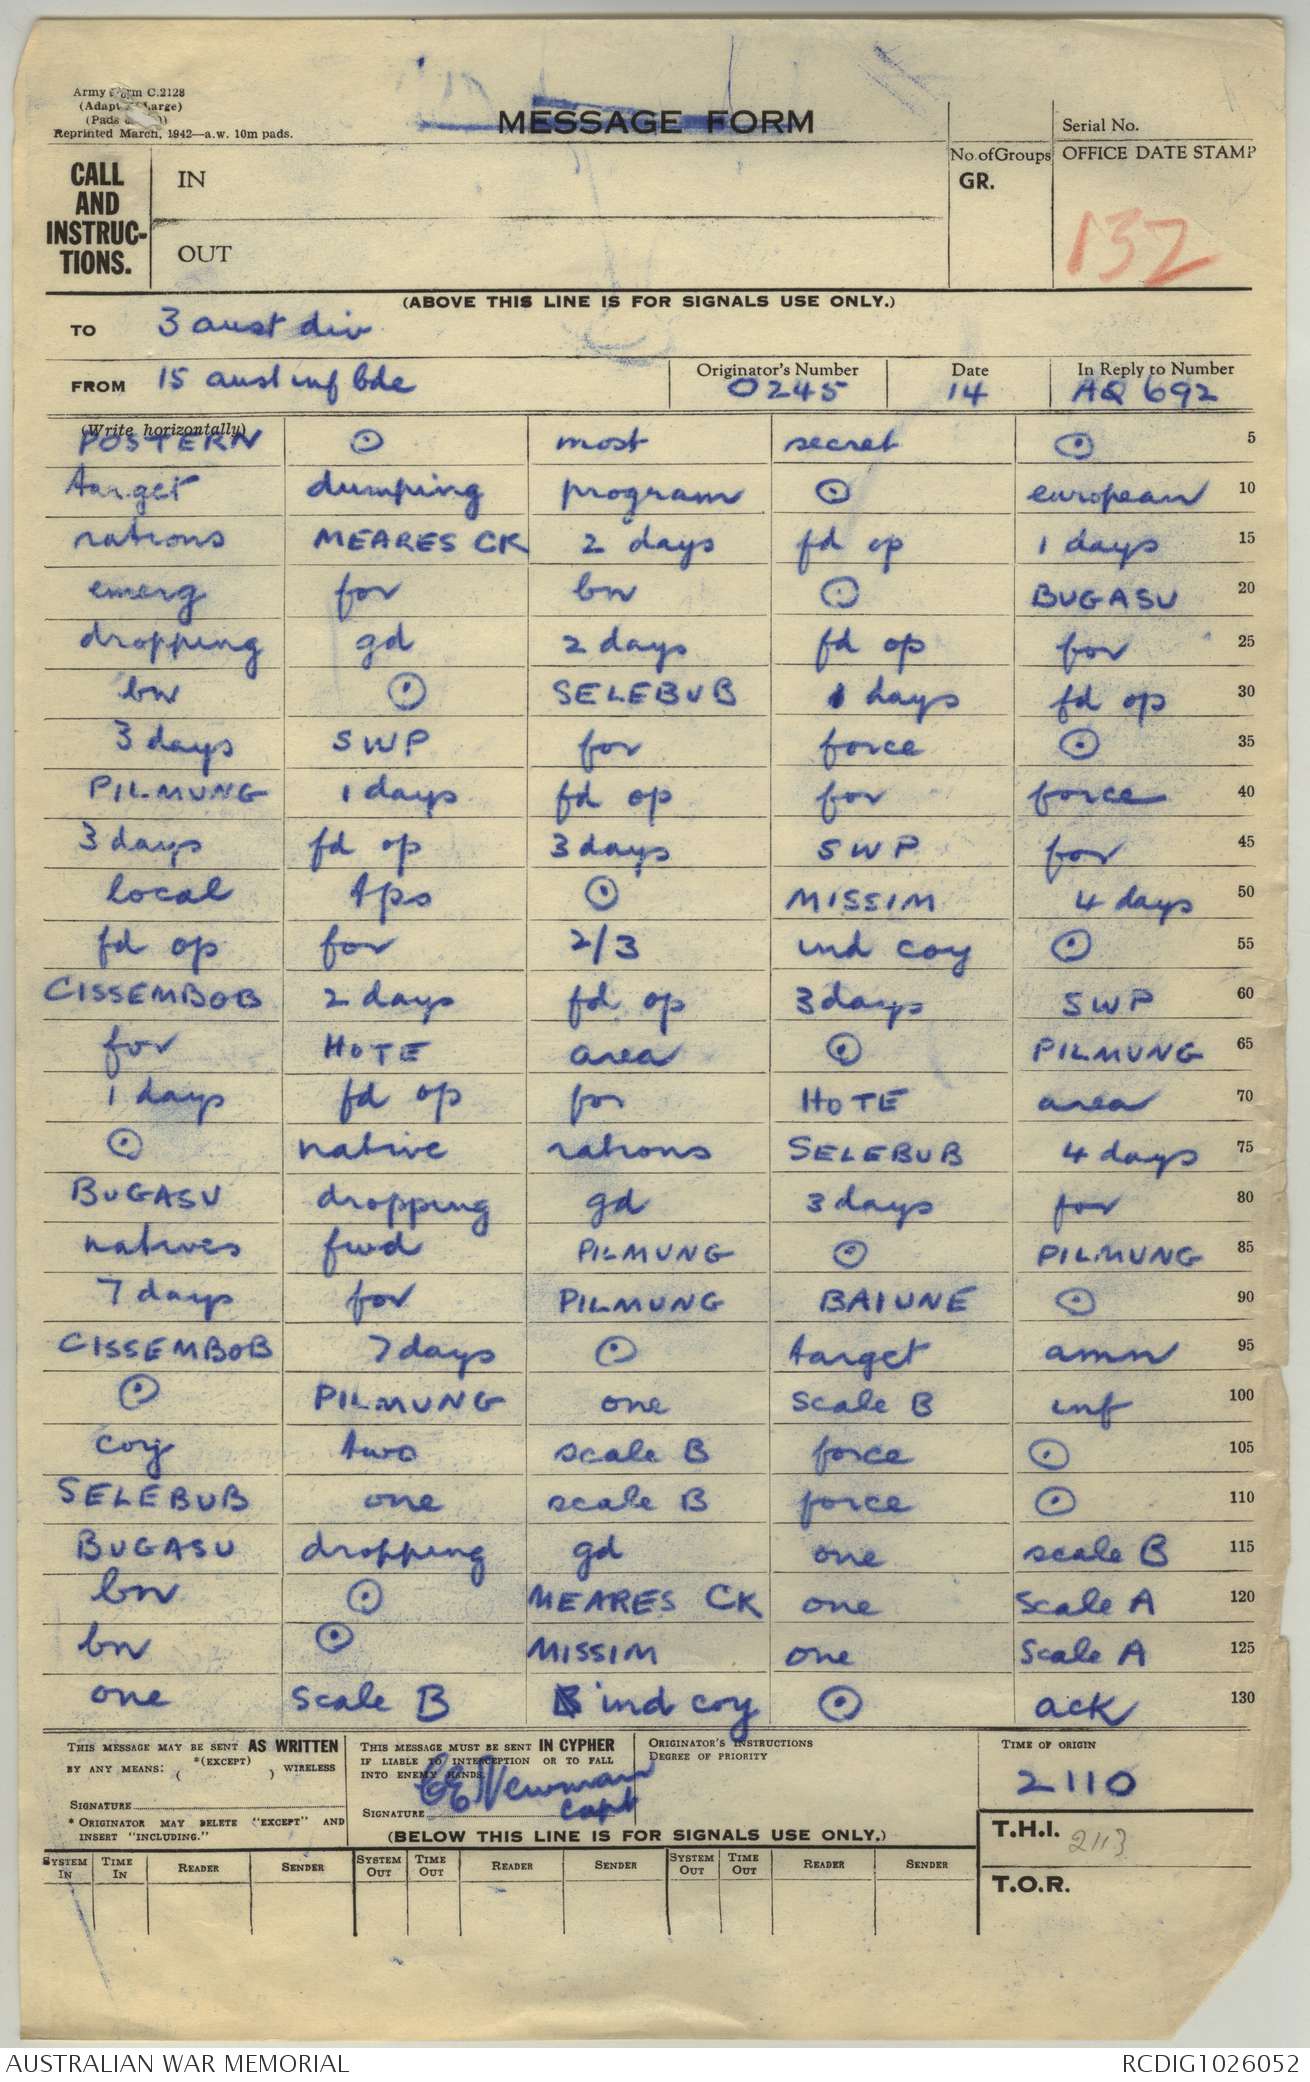 Army Form C.2128
(Adapted Large)
(Pads
Reprinted March, 1942—a.w. 10m pads.
MESSAGE FORM
Serial No.
No. of Groups
GR.
OFFICE DATE STAMP
132
CALL AND INSTRUC-TIONS.
IN
OUT
(ABOVE THIS LINE IS FOR SIGNALS USE ONLY.)
TO 3 aust div
FROM 15 aust inf bde Originator's Number 0245 Date 14 In Reply to Number AQ 692
(Write horizontally)
POSTERN ⊙ most secret ⊙ 5
target dumping program ⊙ european 10
rations MEARES CK 2 days fd op 1 days 15
emerg for bn ⊙ BUGASU 20
dropping gd 2 days fd op for 25
bn ⊙ SELEBUB 1 days fd op 30
3 days SWP for force ⊙ 35
PILMUNG 1 days fd op for force 40
3 days fd op 3 days SWP for 45
local tps ⊙ MISSIM 4 days 50
fd op for 2/3 ind coy ⊙ 55
CISSEMBOB 2 days fd op 3 days SWP 60
for HOTE area ⊙ PILMUNG 65
1 days fd op for HOTE area 70
⊙ native rations SELEBUB 4 days 75
BUGASU dropping gd 3 days for 80
natives fwd PILMUNG ⊙ PILMUNG 85
7 days for PILMUNG BAIUNE ⊙ 90
CISSEMBOB 7 days ⊙ target amn 95
⊙ PILMUNG one scale B inf 100
coy two scale B force ⊙ 105
SELEBUB one scale B force ⊙ 110
BUGASU dropping gd one scale B 115
bn ⊙ MEARES CK one scale A 120
bn ⊙ MISSIM one scale A 125
one scale B ind coy ⊙ ack 130
THIS MESSAGE MAY BE SENT AS WRITTEN
BY ANY MEANS: *(EXCEPT) ( ) WIRELESS
SIGNATURE
* ORIGINATOR MAY DELETE "EXCEPT" AND
INSERT "INCLUDING."
THIS MESSAGE MUST BE SENT IN CYPHER
IF LIABLE TO INTERCEPTION OR TO FALL
INTO ENEMY HANDS.
SIGNATURE Newman Capt
ORIGINATOR'S INSTRUCTIONS
DEGREE OF PRIORITY
TIME OF ORIGIN
2110
(BELOW THIS LINE IS FOR SIGNALS USE ONLY.)
T.H.I. 2113
T.O.R.
SYSTEM IN TIME IN READER SENDER SYSTEM OUT TIME OUT READER SENDER SYSTEM OUT TIME OUT READER SENDER
AUSTRALIAN WAR MEMORIAL RCDIG1026052